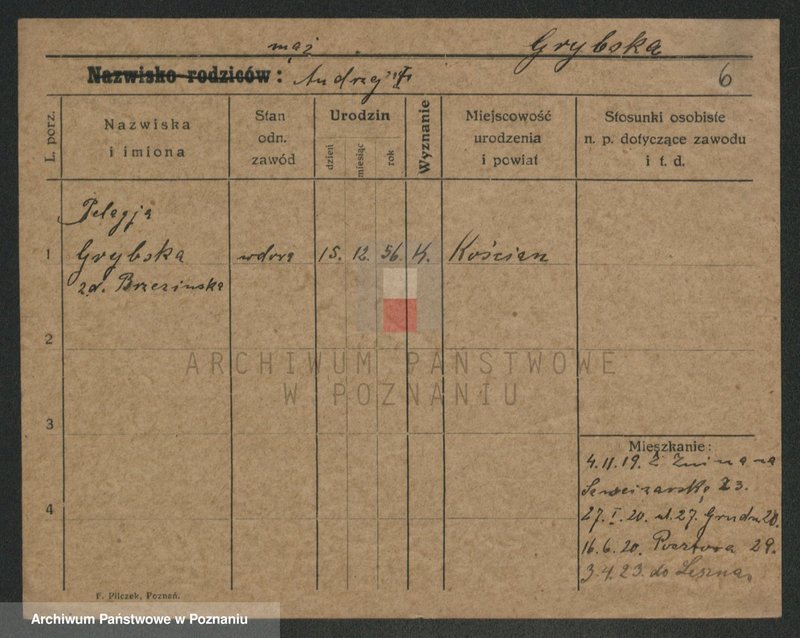 mąż Grybska
Nazwisko rodziców: Andrzej 6
L. porz.
Nazwiska
i imiona
Stan
odn.
zawód
Urodzin
dzień
miesiąc
rok
Wyznanie
Miejscowość
urodzenia
i powiat
Stosunki osobiste
n. p. dotyczące zawodu
i t. d.
Pelagja
1 Grybska wdowa 15. 12. 56. K. Kościan
zd. Brzezinska
2
ARCHIWUM PAŃSTWOWE
W POZNANIU
3
4
Mieszkanie:
4.11.19. Z
3.
27.I.20. ul. 27. Grudn 20.
16.6.20. Pocztowa 29.
3.4.23. do Leszna
F. Pilczek, Poznań.
Archiwum Państwowe w Poznaniu